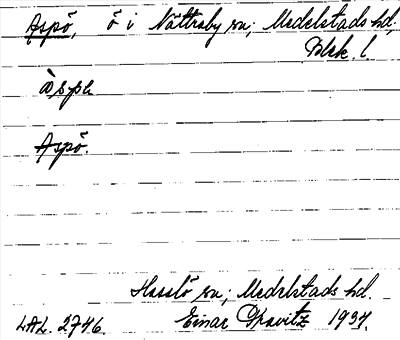 Aspö, ö i Nättraby sn; Medelstads hd;
Blek. l.
àspö
Aspö.
Hasslö sn; Medelstads hd.
LAL. 2746. Einar Gravitz 1937.